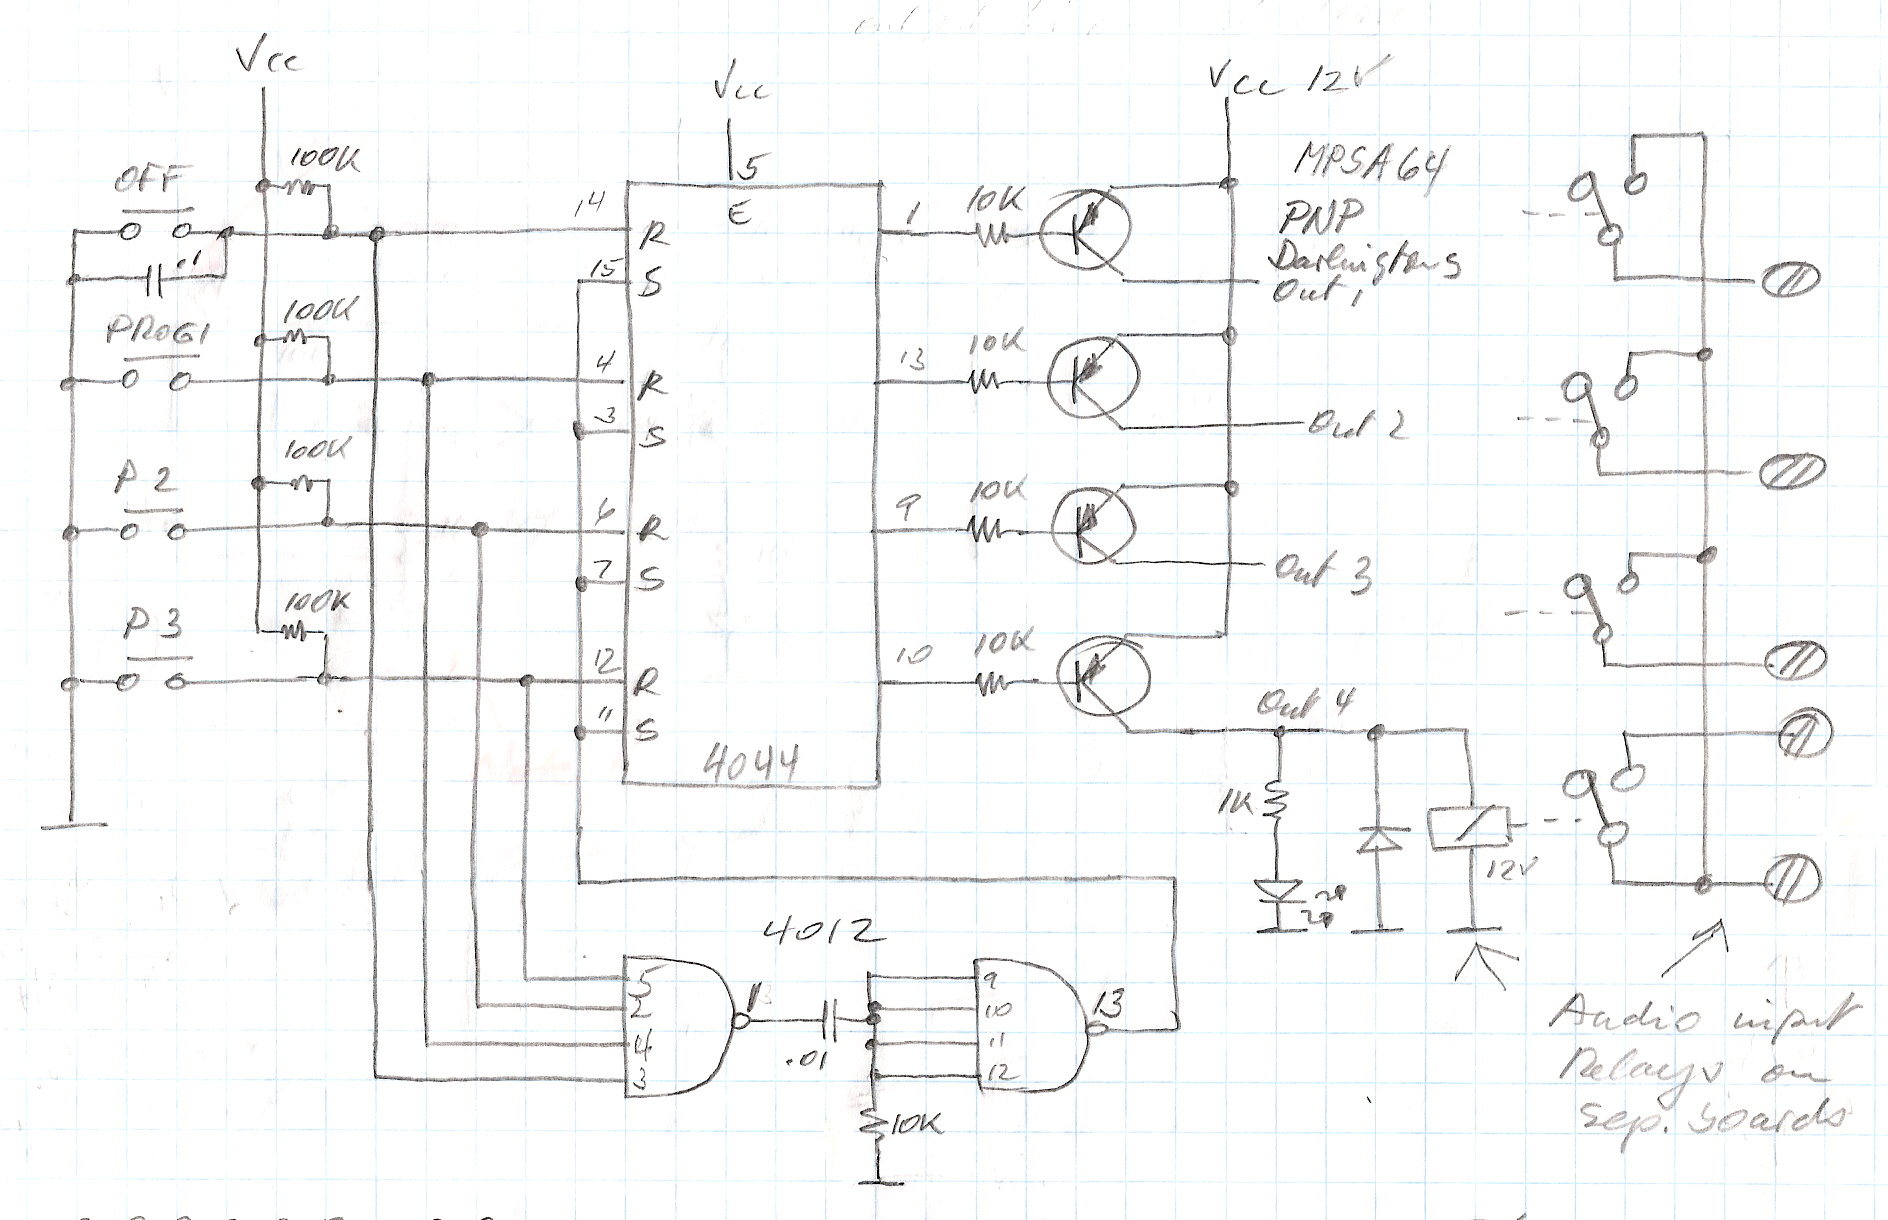 Vcc
Vcc
Vcc 12V
OFF
100K
.1
PROG1
100K
P2
100K
P3
100K
5
E
14
R
15
S
4
R
3
S
6
R
7
S
12
R
11
S
4044
1
10K
13
10K
9
10K
10
10K
MPSA64
PNP
Darlingtons
Out 1
Out 2
Out 3
Out 4
1K
12V
4012
5
2
4
3
.01
9
10
11
12
13
10K
Audio input
Relays on
sep. boards